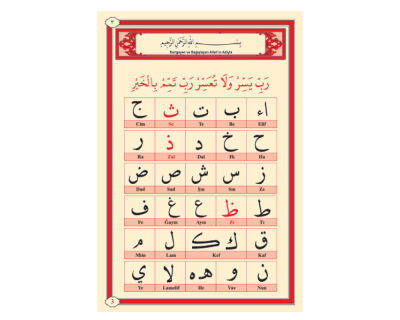 ٣
بِسْمِ اللهِ الرَّحْمٰنِ الرَّحِيمِ
Esirgeyen ve Bağışlayan Allah'ın Adıyla
رَبِّ يَسِّرْ وَلَا تُعَسِّرْ رَبِّ تَمِّمْ بِالْخَيْرِ
اء ب ت ث ج
Cim Se Te Be Elif
ح خ د ذ ر
Ra Zal Dal Hı Ha
ز س ش ص ض
Dad Sad Şın Sin Ze
ط ظ ع غ ف
Fe Ğayın Ayın Zı Tı
ق ك ک ل م
Mim Lam Kef Kaf
ن و ه ه لا ي
Ye Lamelif He Vav Nun
3